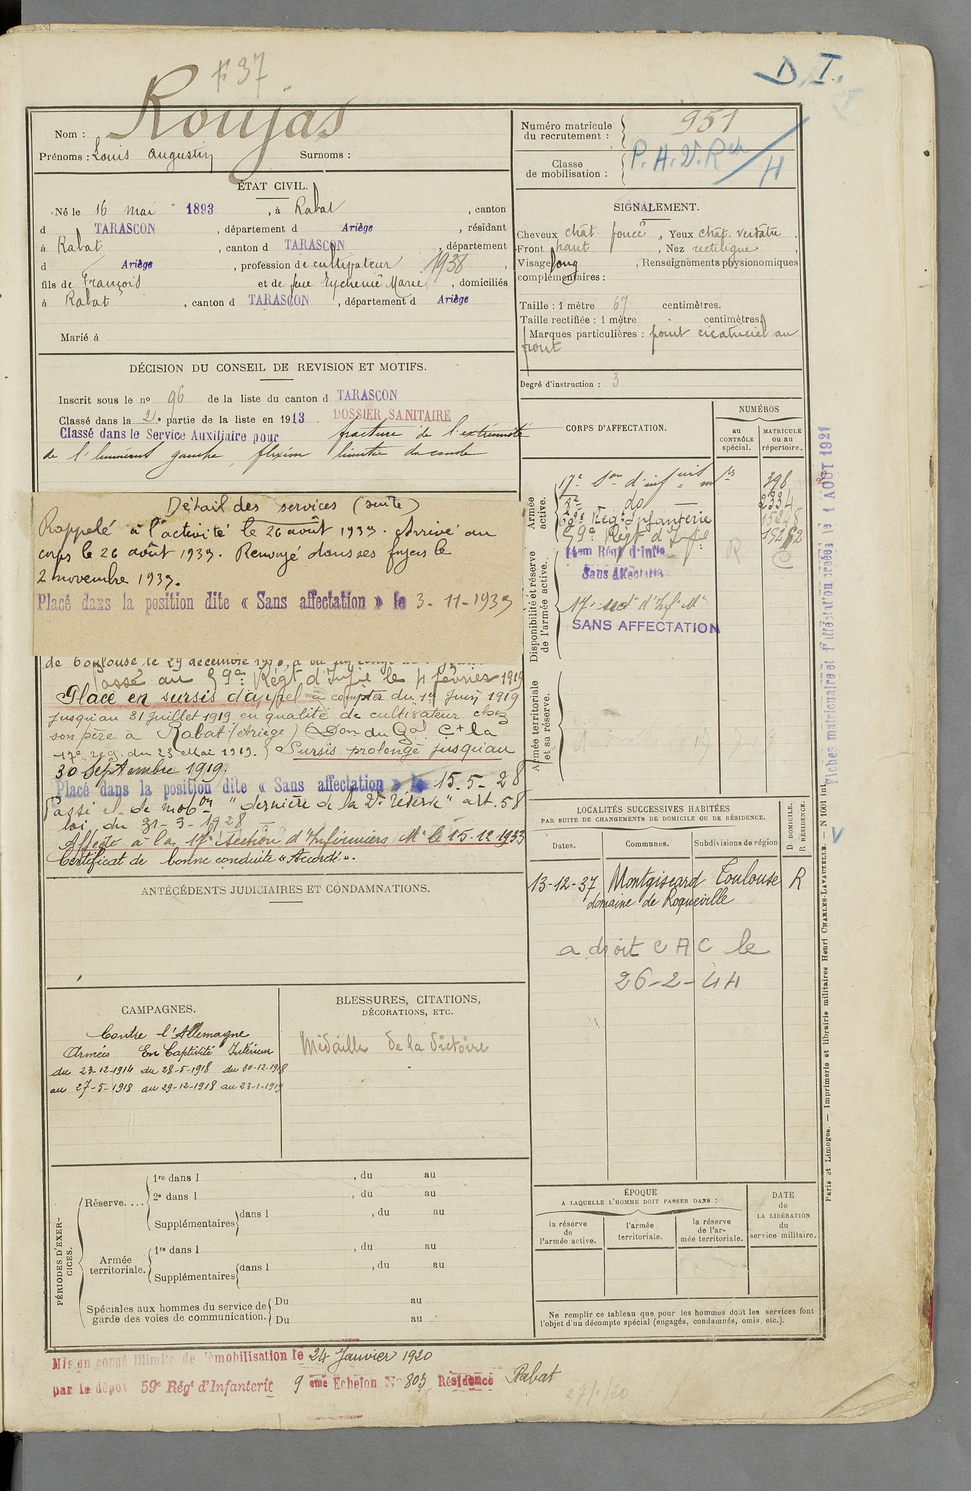 F 37
D I.
Nom : Roujas
Prénoms : Louis Augustin Surnoms :
Numéro matricule du recrutement : 951
Classe de mobilisation : P. A. D. R H
ÉTAT CIVIL.
Né le 16 mai 1893, à Rabat, canton
d TARASCON, département d Ariège, résidant
à Rabat, canton d TARASCON, département
d Ariège, profession de cultivateur 1938,
fils de François et de feue Eychenne Marie, domiciliés
à Rabat, canton d TARASCON, département d Ariège
Marié à
SIGNALEMENT.
Cheveux chât. foncé, Yeux chât. verdâtre.
Front haut, Nez rectiligne,
Visage long, Renseignements physionomiques
complémentaires :
Taille : 1 mètre 67 centimètres.
Taille rectifiée : 1 mètre centimètres.
Marques particulières : point cicatriciel au
front
Degré d'instruction : 3
DÉCISION DU CONSEIL DE REVISION ET MOTIFS.
Inscrit sous le no 96 de la liste du canton d TARASCON
Classé dans la 2e partie de la liste en 1913 DOSSIER SANITAIRE
Classé dans le Service Auxiliaire pour fracture de l'extrémité
de l'humérus gauche, flexion limitée du coude
Détail des services (suite)
Rappelé à l'activité le 26 août 1939. Arrivé au
corps le 26 août 1939. Renvoyé dans ses foyers le
2 novembre 1939.
Placé dans la position dite « Sans affectation » le 3-11-1939
de Toulouse le 29 décembre
Passé au 59e Régt d'Inf.ie le 4 février 1919
Placé en sursis d'appel à compter du 1er Juin 1919
jusqu'au 31 juillet 1919 en qualité de cultivateur chez
son père à Rabat (Ariège) (Don du Gal Ct la
17e rég. du 23 Mai 1919.) Sursis prolongé jusqu'au
30 Septembre 1919.
Placé dans la position dite « Sans affectation » le 15-5-28
Passé cl. de mobon "dernière de la 2e Réserve" art. 58
loi du 31-3-1928
Affecté à la 17e section d'Infirmiers Mre le 15-12-1933
Certificat de bonne conduite « Accordé ».
CORPS D'AFFECTATION.
NUMÉROS
au CONTRÔLE spécial.
MATRICULE ou au répertoire.
Armée active.
17e Son d'inf
2e do 2334
Régt Infanterie
59e Régt d'Inf.ie
Disponibilité et réserve de l'armée active.
14em Régt d'Inf.ie R
Sans Affectation
17e sect d'Inf. Mre
SANS AFFECTATION
Armée territoriale et sa réserve.
ANTÉCÉDENTS JUDICIAIRES ET CONDAMNATIONS.
LOCALITÉS SUCCESSIVES HABITÉES
PAR SUITE DE CHANGEMENTS DE DOMICILE OU DE RÉSIDENCE.
Dates. Communes. Subdivisions de région D DOMICILE. R RÉSIDENCE.
13-12-37 Montgiscard Toulouse R
domaine de Roqueville
a droit C A C le
26-2-44
CAMPAGNES.
Contre l'Allemagne
Armées En Captivité Intérieur
du 23-12-1914 du 28-5-1918 du 30-12-1918
au 27-5-1918 au 29-12-1918 au 23-1-1919
BLESSURES, CITATIONS,
DÉCORATIONS, ETC.
Médaille de la Victoire
PÉRIODES D'EXERCICES.
Réserve.... 1re dans l , du au
2e dans l , du au
Supplémentaires dans l , du au
Armée territoriale. 1re dans l , du au
Supplémentaires dans l , du au
Spéciales aux hommes du service de garde des voies de communication. Du au
Du au
ÉPOQUE
A LAQUELLE L'HOMME DOIT PASSER DANS :
la réserve de l'armée active.
l'armée territoriale.
la réserve de l'armée territoriale.
DATE de LA LIBÉRATION du service militaire.
Ne remplir ce tableau que pour les hommes dont les services font
l'objet d'un décompte spécial (engagés, condamnés, omis, etc.).
Mis en congé illimité de démobilisation le 24 Janvier 1920
par le dépôt 59e Régt d'Infanterie 9 eme Echelon N° 803 Résidence Rabat
Fiches matriculaire et d'affectation créées le 1 AOUT 1927
Paris et Limoges. — Imprimerie et librairie militaires Henri CHARLES-LAVAUZELLE. — N 1001